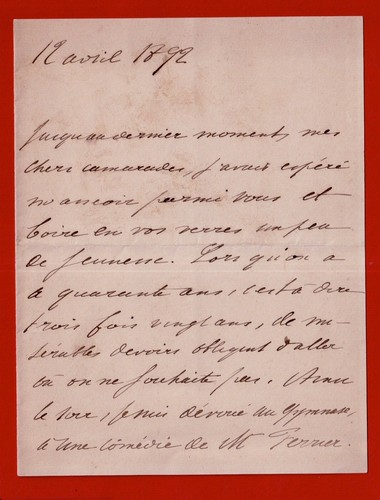 12 avril 1892
Jusqu'au dernier moment, mes
chers camarades, j'avais espéré
m'asseoir parmi vous et
boire en vos verres un peu
de jeunesse. Lorsqu'on a
a quarante ans, c'est à dire
trois fois vingt ans, de mi-
sérables devoirs obligent d'aller
où on ne souhaite pas.
le soir, je suis dévoré au Gymnase,
à une comédie de Mr Ferrier.